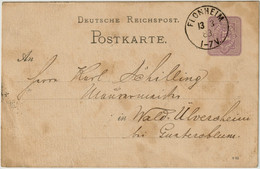 DEUTSCHE REICHSPOST.
POSTKARTE.
FLONHEIM
13
1-7N
An
Herrn Karl Schilling
Mauermeister
in Wald-Ülversheim
bei Guntersblum.